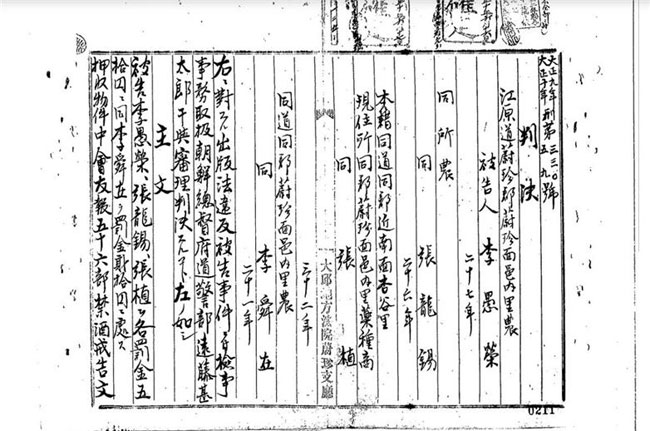 大正九年 刑第三三〇號
大正十年 五九
判決
江原道蔚珍郡蔚珍面邑内里農
被告人 李愚榮
二十七年
同所農
同 張龍錫
二十六年
本籍同道同郡近南面杏谷里
現住所同郡蔚珍面邑内里藥種商
同 張植
大邱地方法院蔚珍支廳
三十二年
同道同郡蔚珍面邑内里農
同 李舜在
二十一年
右ニ對スル出版法違反被告事件ニ付檢事
事務取扱朝鮮總督府道警部遠藤甚
太郎干與審理判決スル 左ノ如シ
主文
被告李愚榮、張龍錫、張植ヲ各罰金五
拾圓ニ同李舜在ヲ罰金 拾圓ニ處ス
押收物件中會友報五十六部禁酒戒告文
0211